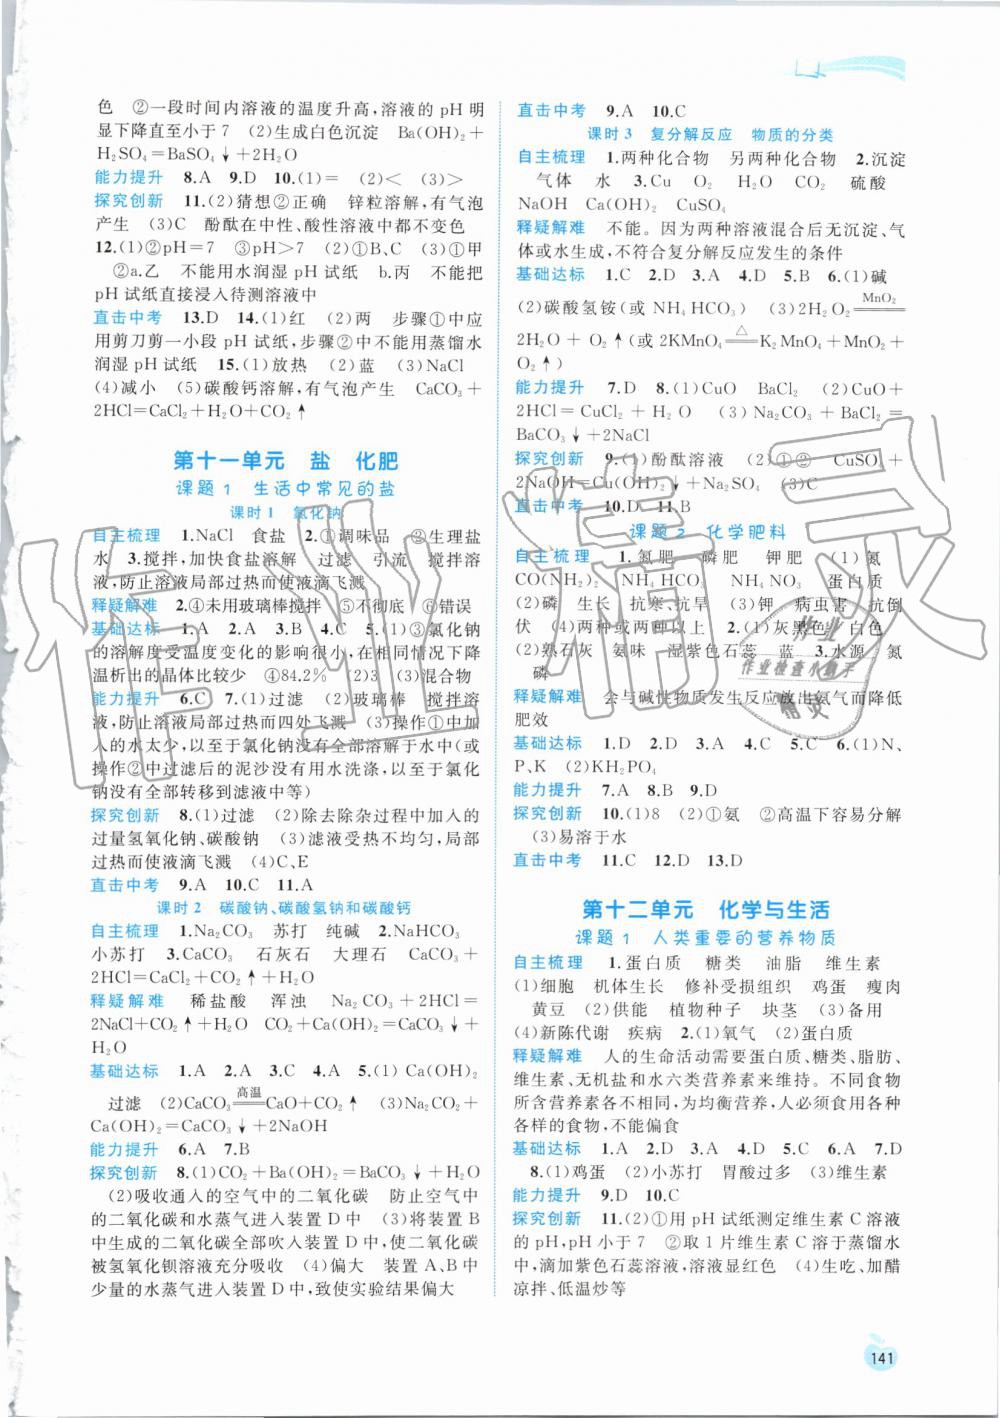 色　②一段时间内溶液的温度升高,溶液的 pH 明
显下降直至小于 7　(2)生成白色沉淀　Ba(OH)₂+
H₂SO₄=BaSO₄↓+2H₂O
能力提升　8.A　9.D　10.(1)=　(2)<　(3)>
探究创新　11.(2)猜想②正确　锌粒溶解,有气泡
产生　(3)C　酚酞在中性、酸性溶液中都不变色
12.(1)②pH=7　③pH>7　(2)①B、C　(3)①甲
②a.乙　不能用水润湿 pH 试纸　b.丙　不能把
pH 试纸直接浸入待测溶液中
直击中考　13.D　14.(1)红　(2)两　步骤①中应
用剪刀剪一小段 pH 试纸、步骤②中不能用蒸馏水
润湿 pH 试纸　15.(1)放热　(2)蓝　(3)NaCl
(4)减小　(5)碳酸钙溶解,有气泡产生　CaCO₃+
2HCl=CaCl₂+H₂O+CO₂↑
第十一单元　盐　化肥
课题 1　生活中常见的盐
课时 1　氯化钠
自主梳理　1.NaCl　食盐　2.①调味品　③生理盐
水　3.搅拌,加快食盐溶解　过滤　引流　搅拌溶
液,防止溶液局部过热而使液滴飞溅
释疑解难　2.④未用玻璃棒搅拌　⑤不彻底　⑥错误
基础达标　1.A　2.A　3.B　4.C　5.(1)③氯化钠
的溶解度受温度变化的影响很小,在降温过程中降
温析出的晶体比较少　④84.2%　(3)混合物
能力提升　6.C　7.(1)过滤　(2)玻璃棒　搅拌溶
液,防止液滴局部过热而四处飞溅　(3)操作①中加入
的水太少,以至于氯化钠没有全部溶解于水中(或
操作②中过滤后的泥沙没有用水洗涤,以至于氯化
钠没有全部转移到滤液中等)
探究创新　8.(1)过滤　(2)除去除杂过程中加入的
过量氢氧化钠、碳酸钠　(3)滤液受热不均匀,局部
过热而使液滴飞溅　(4)C、E
直击中考　9.A　10.C　11.A
课时 2　碳酸钠、碳酸氢钠和碳酸钙
自主梳理　1.Na₂CO₃　苏打　纯碱　2.NaHCO₃
小苏打　3.CaCO₃　石灰石　大理石　CaCO₃+
2HCl=CaCl₂+CO₂↑+H₂O
释疑解难　稀盐酸　浑浊　Na₂CO₃+2HCl=
2NaCl+CO₂↑+H₂O　CO₂+Ca(OH)₂=CaCO₃↓+
H₂O
基础达标　1.A　2.A　3.C　4.A　5.(1)Ca(OH)₂
过滤　(2)CaCO₃=高温=CaO+CO₂↑　(3)Na₂CO₃+
Ca(OH)₂=CaCO₃↓+2NaOH
能力提升　6.A　7.B
探究创新　8.(1)CO₂+Ba(OH)₂=BaCO₃↓+H₂O
(2)吸收通入的空气中的二氧化碳　防止空气中
的二氧化碳和水蒸气进入装置 D 中　(3)将装置 B
中生成的二氧化碳全部吹入装置 D 中,使二氧化碳
被氢氧化钡溶液充分吸收　(4)偏大　装置 A、B 中
少量的水蒸气进入装置 D 中,致使实验结果偏大
直击中考　9.A　10.C
课时 3　复分解反应　物质的分类
自主梳理　1.两种化合物　另两种化合物　2.沉淀
气体　水　3.Cu　O₂　H₂O　CO₂　硫酸
NaOH　Ca(OH)₂　CuSO₄
释疑解难　不能。因为两种溶液混合后无沉淀、气
体或水生成,不符合复分解反应发生的条件
基础达标　1.C　2.D　3.A　4.D　5.B　6.(1)碱
(2)碳酸氢铵(或 NH₄HCO₃)　(3)2H₂O₂=MnO₂=
2H₂O+O₂↑(或 2KMnO₄=△=K₂MnO₄+MnO₂+
O₂↑)
能力提升　7.D　8.(1)CuO　BaCl₂　(2)CuO+
2HCl=CuCl₂+H₂O　(3)Na₂CO₃+BaCl₂=
BaCO₃↓+2NaCl
探究创新　9.(1)酚酞溶液　(2)①②　CuSO₄+
2NaOH=Cu(OH)₂↓+Na₂SO₄　(3)HCl
直击中考　10.D　11.B
课题 2　化学肥料
自主梳理　1.氮肥　磷肥　钾肥　(1)氮
CO(NH₂)₂　NH₄HCO₃　NH₄NO₃　蛋白质
(2)磷　生长　抗寒、抗旱　(3)钾　病虫害　抗倒
伏　(4)两种或两种以上　2.(1)灰黑色　白色
(2)熟石灰　氨味　湿紫色石蕊　蓝　3.水源　氮
磷
释疑解难　会与碱性物质发生反应放出氨气而降低
肥效
基础达标　1.D　2.D　3.A　4.C　5.C　6.(1)N、
P、K　(2)KH₂PO₄
能力提升　7.A　8.B　9.D
探究创新　10.(1)8　(2)①氨　②高温下容易分解
(3)易溶于水
直击中考　11.C　12.D　13.D
第十二单元　化学与生活
课题 1　人类重要的营养物质
自主梳理　1.蛋白质　糖类　油脂　维生素
(1)细胞　机体生长　修补受损组织　鸡蛋　瘦肉
黄豆　(2)供能　植物种子　块茎　(3)备用
(4)新陈代谢　疾病　2.(1)氧气　(2)蛋白质
释疑解难　人的生命活动需要蛋白质、糖类、脂肪、
维生素、无机盐和水六类营养素来维持。不同食物
所含营养素各不相同,为均衡营养,人必须食用各种
各样的食物,不能偏食
基础达标　1.A　2.D　3.A　4.D　5.A　6.A　7.D
8.(1)鸡蛋　(2)小苏打　胃酸过多　(3)维生素
能力提升　9.D　10.C
探究创新　11.(2)①用 pH 试纸测定维生素 C 溶液
的 pH,pH 小于 7　②取 1 片维生素 C 溶于蒸馏水
中,滴加紫色石蕊溶液,溶液显红色　(4)生吃、加醋
凉拌、低温炒等
141
作业精灵
作业
作业检查小助手
精灵